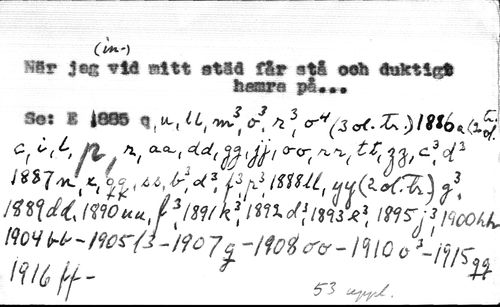 (in-)
När jag vid mitt städ får stå och duktigt
hamra på...
Se: E 1885 q, u, ll, m³, o³, r³, o⁴ (3 ol. tr.) 1886 a (2 ol. tr.)
c, i, l, p, r, aa, dd, gg, jj, oo, rr, tt, zz, c³, d³
1887 n, x, qq, ss, b³, d³, f³, p³, 1888 ll, yy (2 ol. tr.) g³,
1889 dd, 1890 uu, f³, 1891 k³, 1892 d³, 1893 e³, 1895 j³, 1900 hh
1904 bb – 1905 l3 – 1907 g – 1908 oo – 1910 o³ – 1915 qq
1916 ff –
53 uppl.